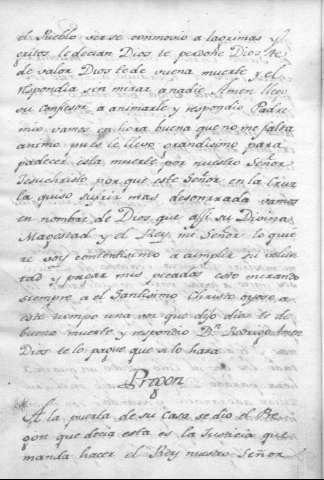 el Pueblo verse conmovio a lagrimas y
gritos le decian Dios te perdone Dios te
de valor Dios te de buena muerte y el
respondia sin mirar a nadie Amen llego
su confesor a animarle y respondio Padre
mio vamos en hora buena que no me falta
animo pues le llevo grandisimo para
padecer esta muerte por nuestro Señor
Jesuchristo por que este Señor en la Cruz
la quiso sufrir mas desonrrada vamos
en nombre de Dios que assi su Divina
Magestad y el Rey mi Señor lo quie
re voy contentissimo a cumplir su volun
tad y pagar mis pecados esto mirando
siempre a el Santissimo Christo oyose a
este tiempo una voz que dijo dios te de
buena muerte y respondio Dn Rodrigo Amen
Dios te lo pague que si lo hara
Pregon
A la puerta de su Casa se dio el Pre
gon que decia esta es la Justicia que
manda hacer el Rey nuestro Señor